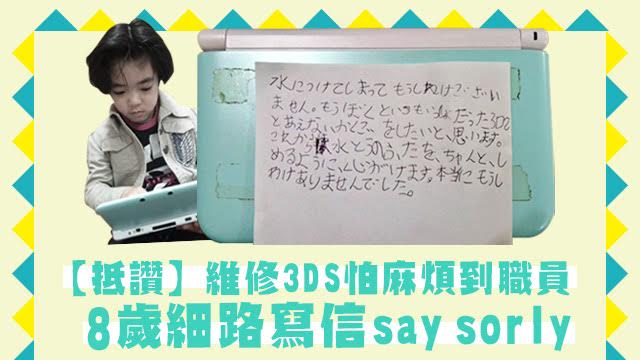 水につけてしまってもうしわけございい
ません。もうぼくといつもいっしょだった3DS
とあえないかとごをしたいと、思います。
これから水とうのふたを、ちゃんと、し
めるように、心がけます。本当にもうし
わけありませんでした。
【抵讚】維修3DS怕麻煩到職員
8歲細路寫信say sorly